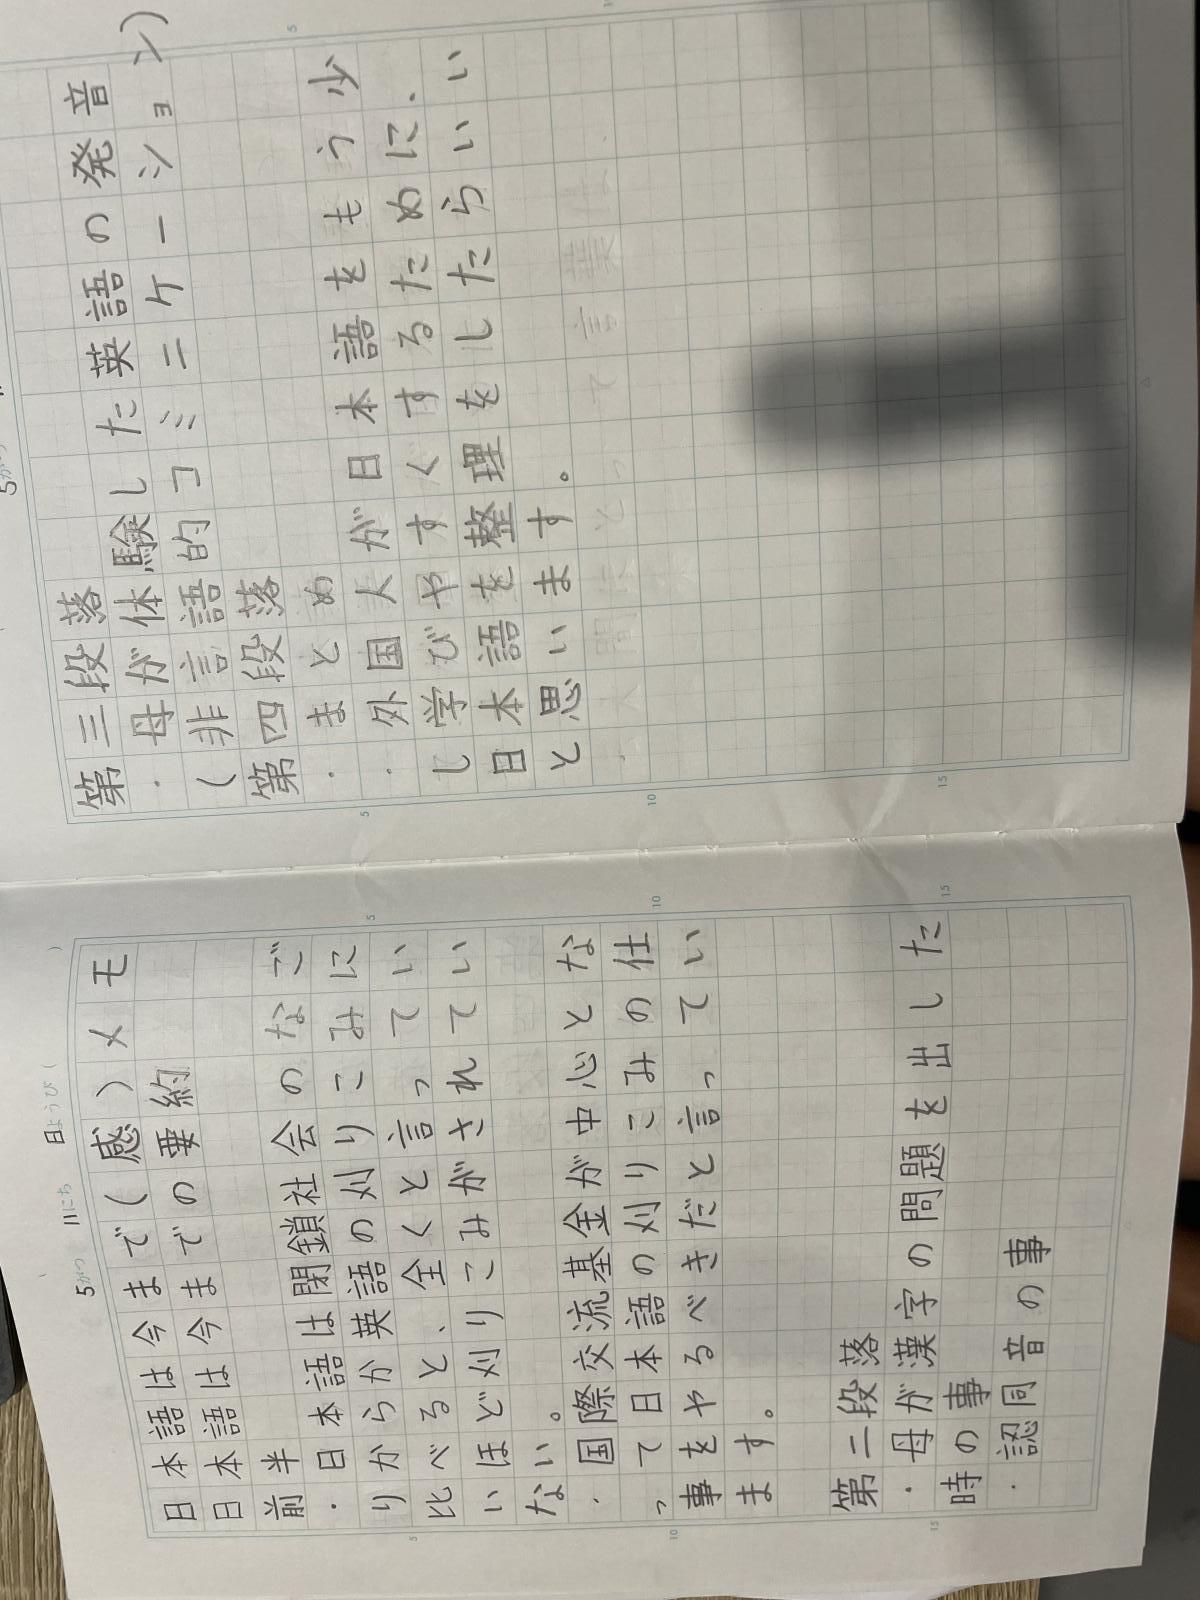 5がつ 11にち ( 日ようび ( )
日本語は今まで(感)メモ
日本語は今までの要約
前半
・日本語は閉鎖社会のなご
りからか英語の刈りこみに
比べると、全くと言ってい
いほど刈りこみがされてい
ない。
・国際交流基金が中心とな
って日本語の刈りこみの仕
事をやるべきだと言ってい
ます。
第二段落
・母が漢字の問題を出した
時の事
・認同音の事
第三段落
・母が体験した英語の発音
(非言語的コミニケーション)
第四段落
・まとめ
・外国人が日本語をもう少
し学びやすくするために、
日本語を整理をしたらいい
と思います。
5
10
15
5
10
15
5
10
15
5
5がつ